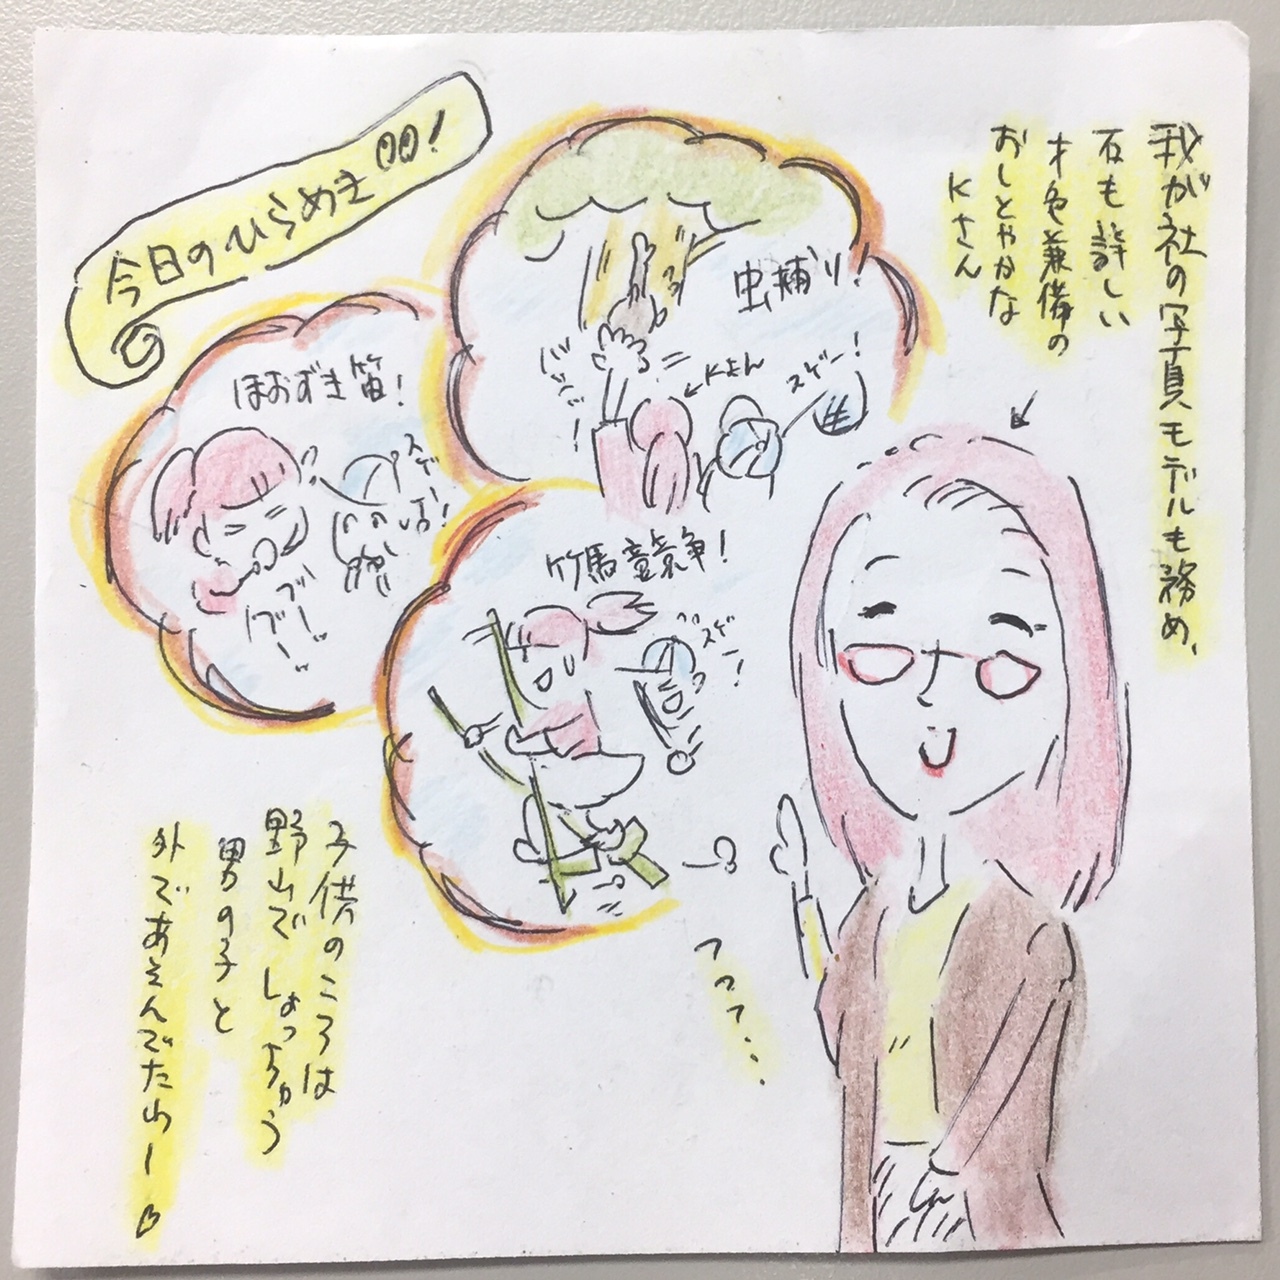 今日のひらめき!
我が社の写真モデルも務め、
石も詳しい
才色兼備の
おしとやかな
Kさん
虫捕り!
Kさん
スゲー!
ほおずき笛!
ブー
ブー
竹馬競争!
スゲー!
子供のころは
野山でしょっちゅう
男の子と
外であそんでたわー